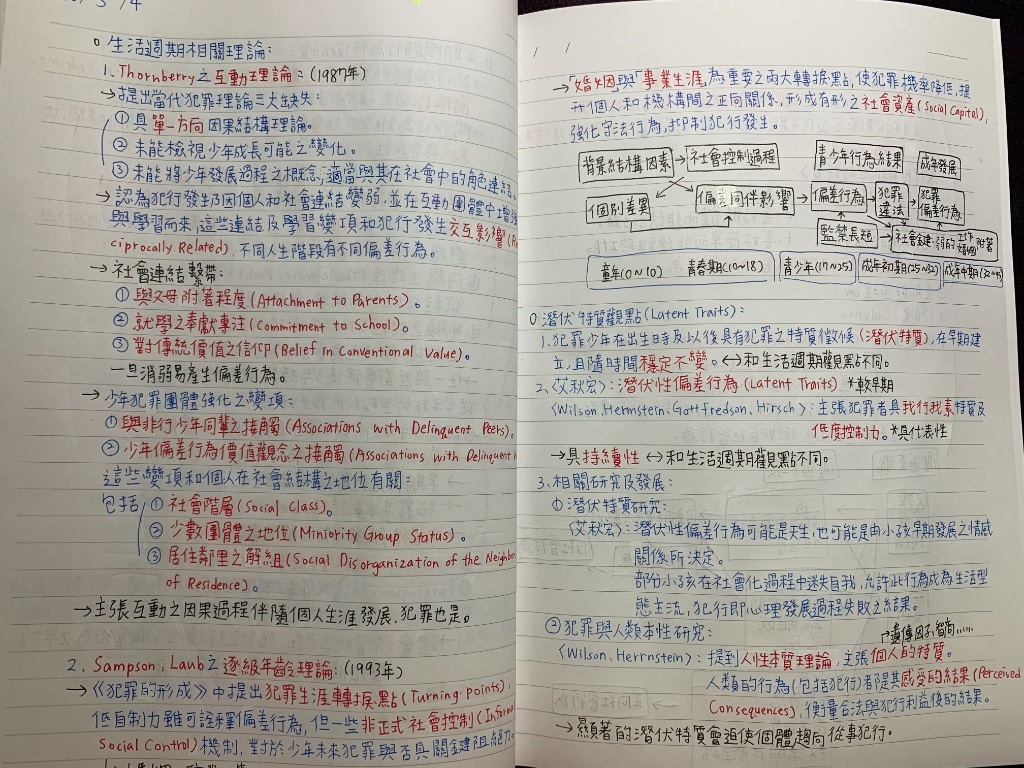 3 / 4
○ 生活週期相關理論：
1. Thornberry之互動理論：(1987年)
→提出當代犯罪理論三大缺失：
① 具單一方向因果結構理論。
② 未能檢視少年成長可能之變化。
③ 未能將少年發展過程之概念，適當與其在社會中的角色連結。
→認為犯行發生乃因個人和社會連結變弱，並在互動團體中增強
與學習而來，這些連結及學習變項和犯行發生交互影響(Re
ciprocally Related)，不同人生階段有不同偏差行為。
→社會連結繫帶：
① 與父母附著程度(Attachment to Parents)。
② 就學之奉獻專注(Commitment to School)。
③ 對傳統價值之信仰(Belief in Conventional Value)。
一旦消弱易產生偏差行為。
→少年犯罪團體強化之變項：
① 與非行少年同輩之接觸(Associations with Delinquent Peers)。
② 少年偏差行為價值觀念之接觸(Associations with Delinquent
這些變項和個人在社會結構之地位有關：
包括 ① 社會階層(Social Class)。
② 少數團體之地位(Miniority Group Status)。
③ 居住鄰里之解組(Social Disorganization of the Neighbor
of Residence)。
→主張互動之因果過程伴隨個人生涯發展，犯罪也是。
2. Sampson、Laub之逐級年齡理論：(1993年)
→《犯罪的形成》中提出犯罪生涯轉捩點(Turning points)，
低自制力雖可詮釋偏差行為，但一些非正式社會控制(Inform
Social Control)機制，對於少年未來犯罪與否具關鍵阻絕力。
→「婚姻」與「事業生涯」為重要之兩大轉捩點，使犯罪機率降低，提
升個人和機構間之正向關係，形成有形之社會資產(Social Capital)，
強化守法行為，抑制犯行發生。
背景結構因素 → 社會控制過程 青少年行為結果 成年發展
個別差異 偏差同伴影響 → 偏差行為 → 犯罪違法 → 犯罪偏差行為
監禁長短 → 社會鍵：弱的工作婚姻附著
童年(0~10) 青春期(10~18) 青少年(17~25) 成年初期(25~32) 成年中期(32~45)
○ 潛伏特質觀點(Latent Traits)：
1. 犯罪少年在出生時及以後具有犯罪之特質徵候(潛伏特質)，在早期建
立，且隨時間穩定不變。↔和生活週期觀點不同。
2.〈艾秋宏〉：潛伏性偏差行為(Latent Traits) *較早期
〈Wilson、Hermstein、Gottfredson、Hirsch〉：主張犯罪者具我行我素特質及
低度控制力。*具代表性
→具持續性 ↔ 和生活週期觀點不同。
3. 相關研究及發展：
① 潛伏特質研究：
〈艾秋宏〉：潛伏性偏差行為可能是天生，也可能是由小孩早期發展之情感
關係所決定。
部分小孩在社會化過程中迷失自我，允許此行為成為生活型
態主流，犯行即心理發展過程失敗之結果。
② 犯罪與人類本性研究： 遺傳因子、智商......
〈Wilson、Herrnstein〉：提到人性本質理論，主張個人的特質。
人類的行為(包括犯行)者階其感受的結果(Perceived
Consequences)，衡量合法與犯行利益後的結果。
→顯著的潛伏特質會迫使個體趨向從事犯行。